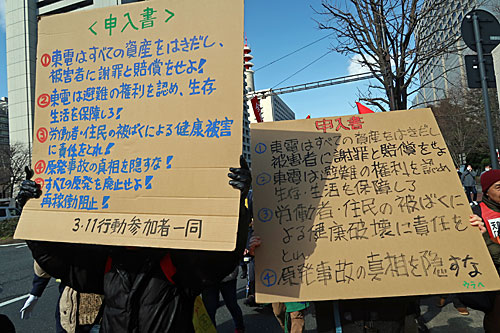 ＜申入書＞
①東電はすべての資産をはきだし、
被害者に謝罪と賠償をせよ!
②東電は避難の権利を認め、生存
生活を保障しろ!
③労働者・住民の被ばくによる健康被害
に責任をとれ!
④原発事故の真相を隠すな!
⑤すべての原発を廃止せよ!
再稼働阻止!
3・11行動参加者一同
申入書
①東電はすべての資産をはきだし
被害者に謝罪と賠償をせよ
②東電は避難の権利を認め
生存・生活を保障しろ
③労働者・住民の被ばくに
よる健康破壊に責任を
とれ
④原発事故の真相を隠すな
ウラへ